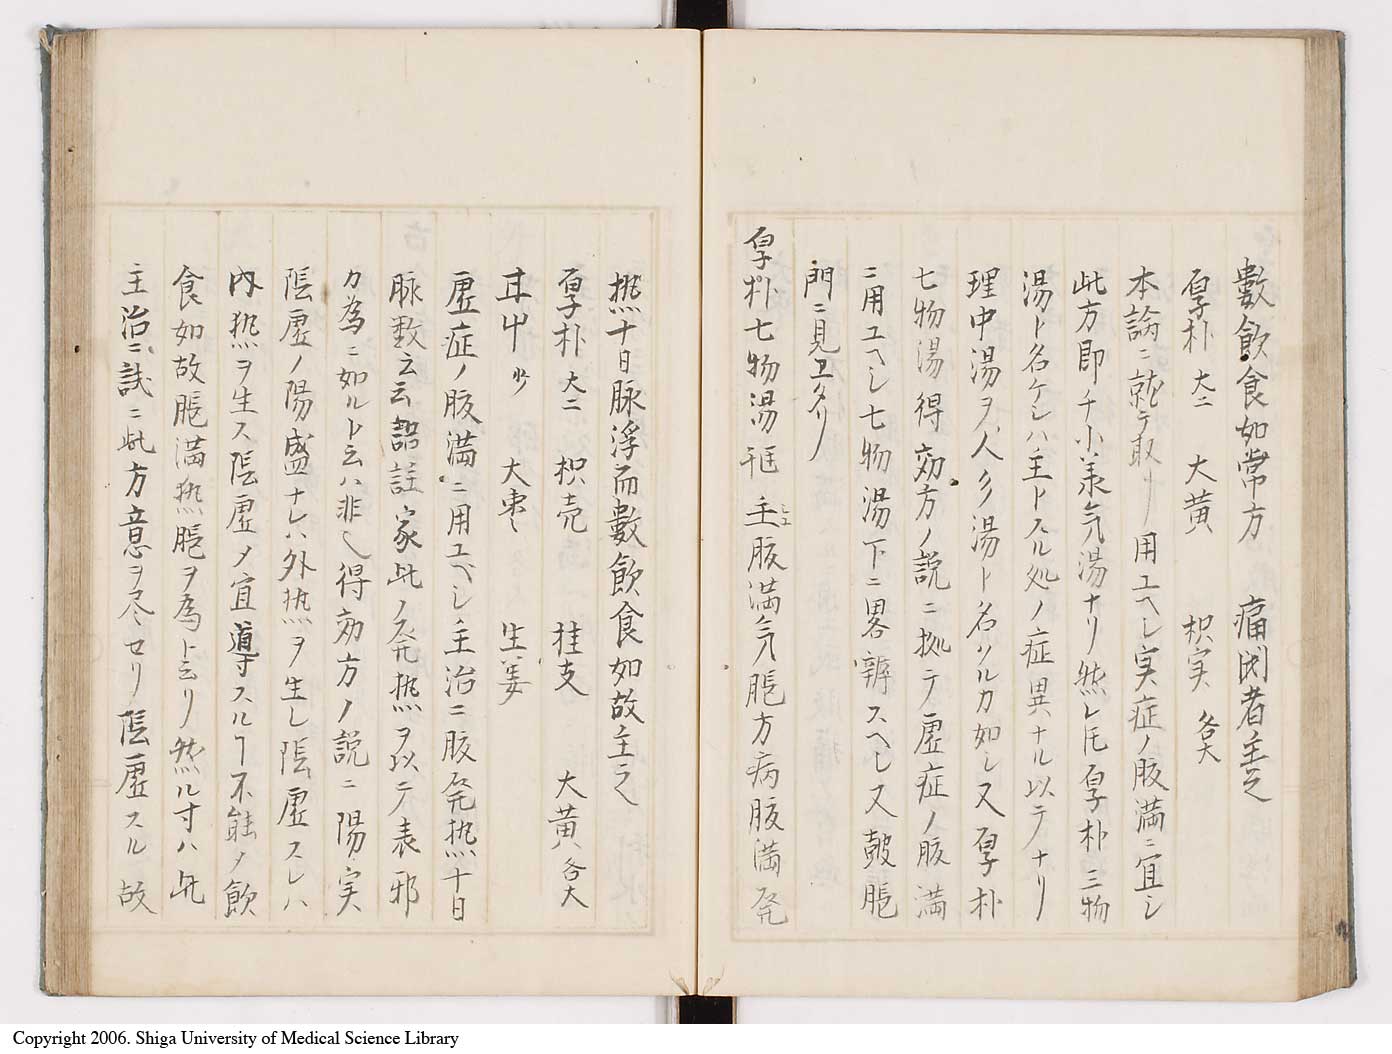 數飲食如常方　痛閉者主之
厚朴 大二　大黄　枳実 各大
本論ニ就テ取リ用ユヘシ実症ノ腹満ニ宜シ
此方即チ小承気湯ナリ然レ𪜈厚朴三物
湯ト名ケシハ主トスル処ノ症異ナル以テナリ
理中湯ヲ人参湯ト名ツルカ如シ又厚朴
七物湯得効方ノ説ニ拠テ虚症ノ腹満
ニ用ユヘシ七物湯下ニ畧辨スヘシ又鼓脹
門ニ見エタリ
厚朴七物湯 主腹満気脹方病腹満発
熱十日脉浮而數飲食如故主之
厚朴 大二　枳壳　桂支　大黄 各大
甘艸 少　大棗　生姜
虚症ノ腹満ニ用ユベシ主治ニ腹発熱十日
脉数云云諸註家此ノ発熱ヲ以テ表邪
カ為ニ如ルト云ハ非也得効方ノ説ニ陽実
陰虚ノ陽盛ナレハ外热ヲ生シ陰虚スレハ
内热ヲ生ス陰虚メ宜導スルヿ不能メ飲
食如故脹満热脹ヲ為ト云リ然ル寸ハ此
主治ニ試ニ此方意ヲ尽セリ陰虚スル故